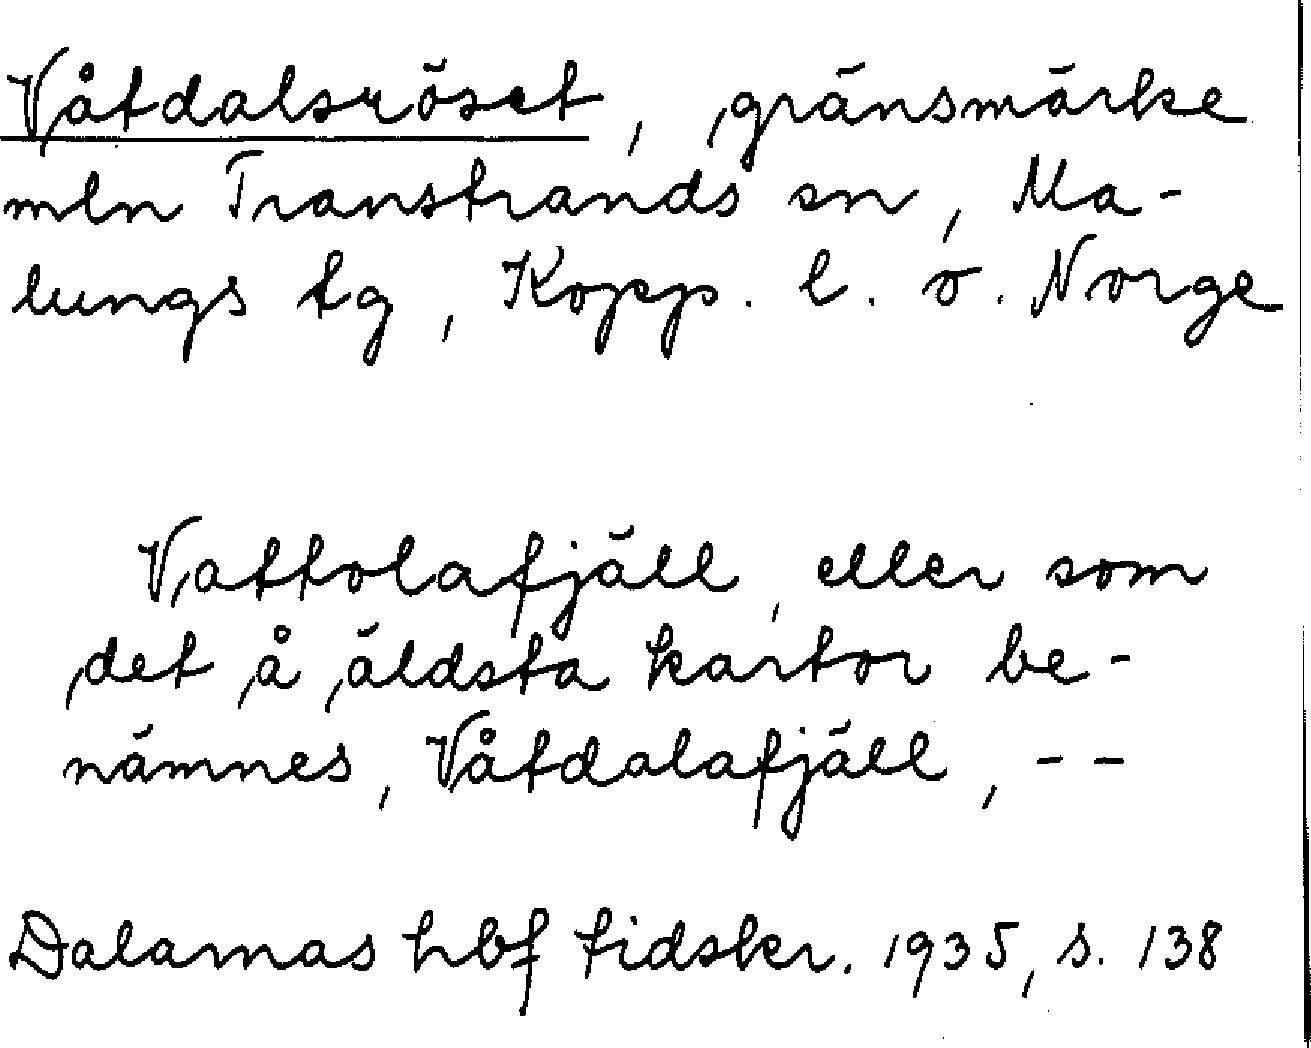 Våtdalsröset, gränsmärke
mln Transtrands sn, Ma-
lungs tg, Kopp. l. o. Norge
Vattolafjäll, eller som
det å äldsta kartor be-
nämnes, Våtdalafjäll, --
Dalarnas hbf tidskr. 1935, s. 138